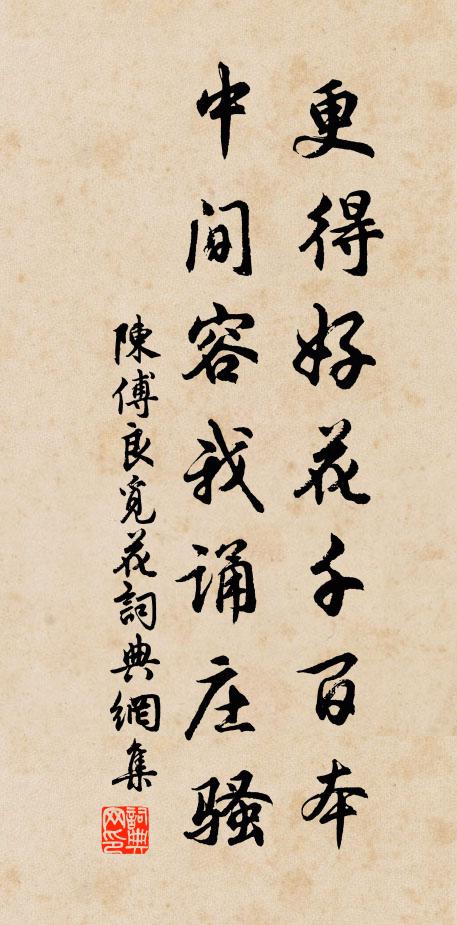 更得好花千百本
中间容我诵庄骚
陳傅良覓花詞典網集
詞典网印